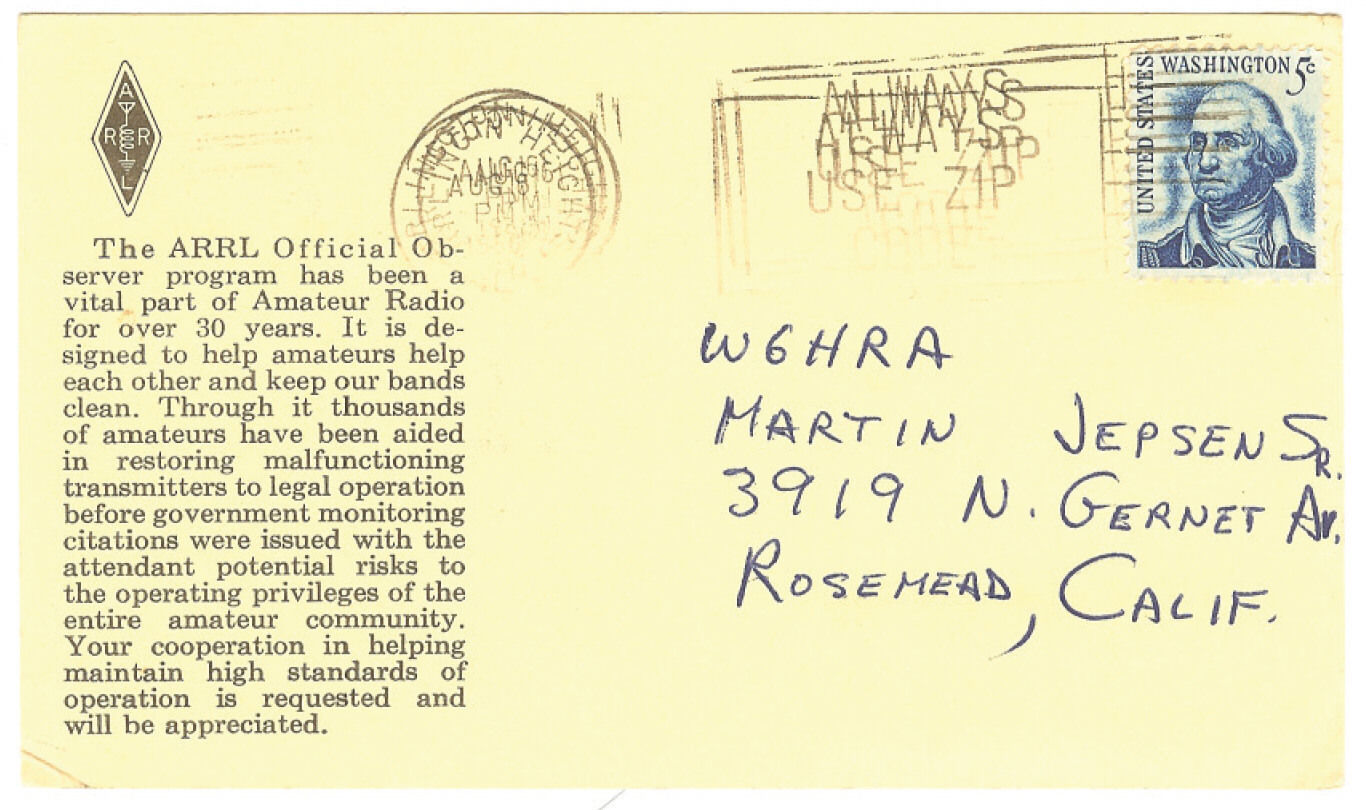 A
R R
L
ARLINGTON HEIGHTS
AUG 16
PM
ALWAYS
USE ZIP
CODE
UNITED STATES
WASHINGTON 5c
The ARRL Official Ob-
server program has been a
vital part of Amateur Radio
for over 30 years. It is de-
signed to help amateurs help
each other and keep our bands
clean. Through it thousands
of amateurs have been aided
in restoring malfunctioning
transmitters to legal operation
before government monitoring
citations were issued with the
attendant potential risks to
the operating privileges of the
entire amateur community.
Your cooperation in helping
maintain high standards of
operation is requested and
will be appreciated.
W6HRA
MARTIN JEPSEN SR.
3919 N. GERNET AV.
ROSEMEAD, CALIF.